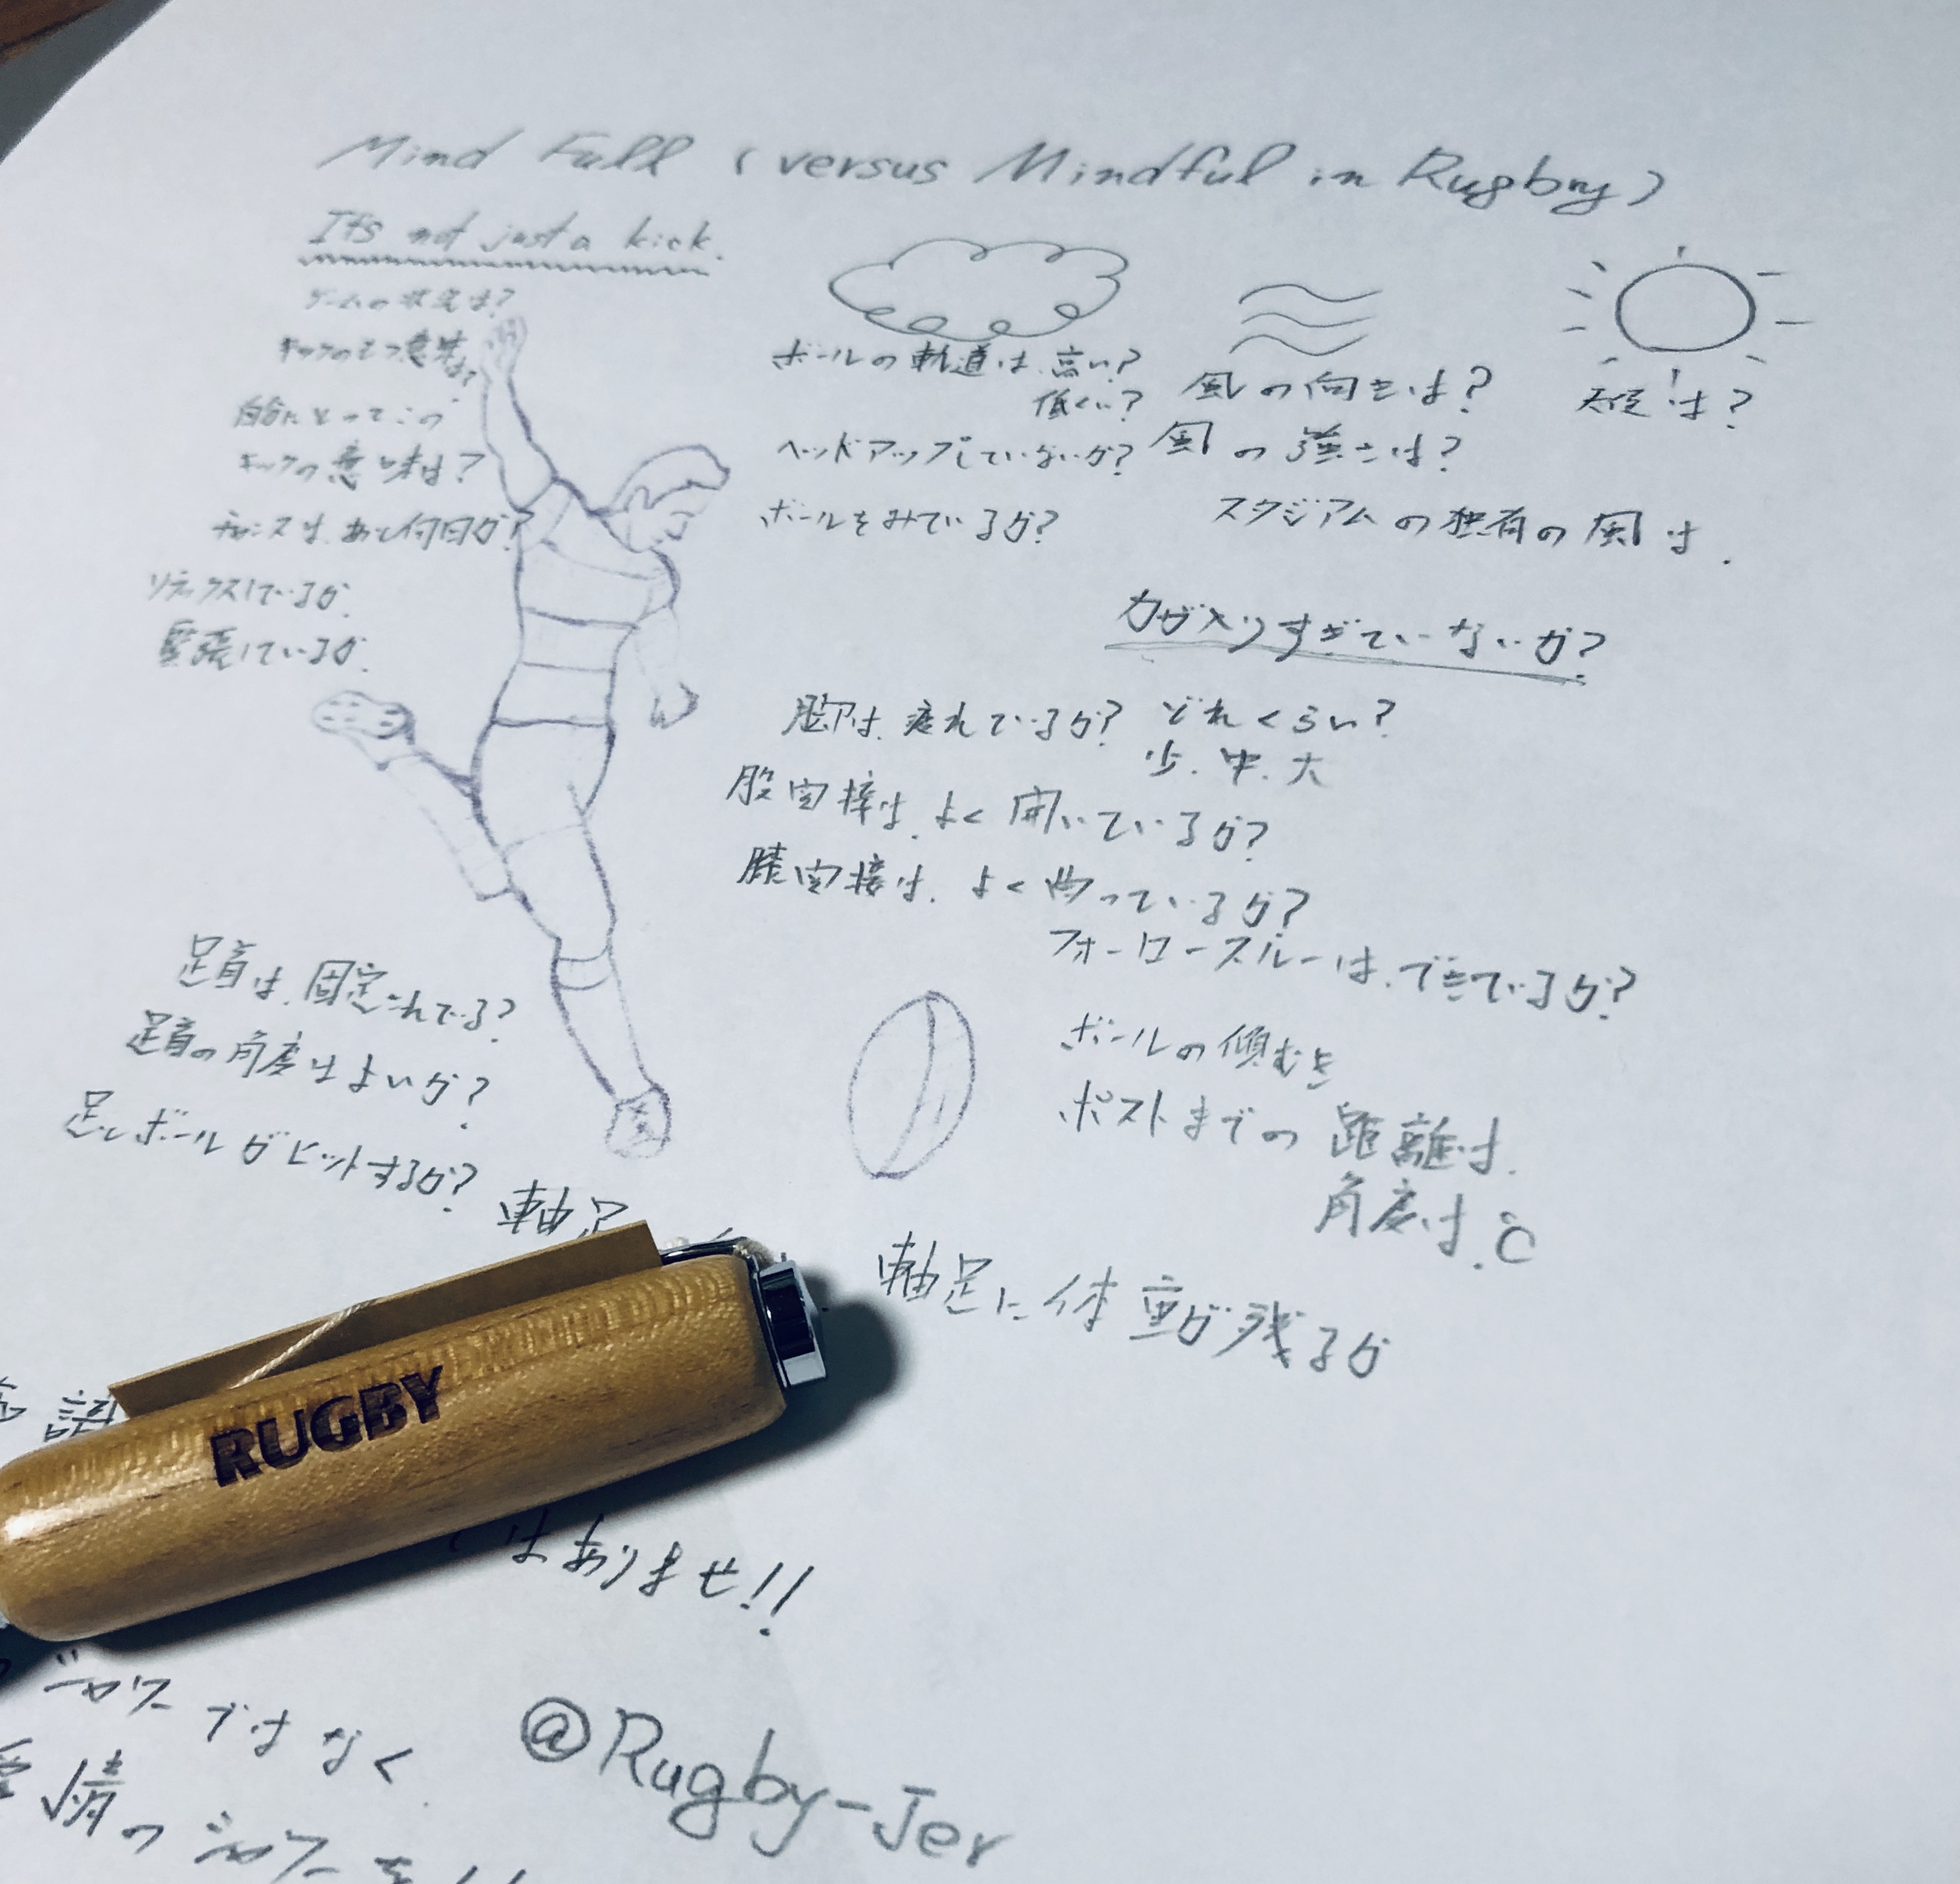 Mind Full (versus Mindful in Rugby)
It's not just a kick.
ゲームの状況は?
キックのもつ意味は?
自分にとってこの
キックの意味は?
チャンスは、あと何回か?
リラックスしているか.
緊張しているか.
ボールの軌道は、高い?
低くい?
ヘッドアップしていないか?
ボールをみているか?
風の向きは?
風の強さは?
スタジアムの独有の風は.
天候は?
力が入りすぎていないか?
脚は、疲れているか? どれくらい?
少. 中. 大
股関接は、よく開いているか?
膝関接は、よく曲っているか?
フォーロースルーは、できているか?
足首は、固定されてる?
足首の角度はよいか?
足にボールがヒットするか?
ボールの傾むき
ポストまでの距離は.
角度は.
軸足
軸足に体重が残るか
語
RUGBY
はありませ!!
シャワーではなく
情のシャワーを
@Rugby-Jer